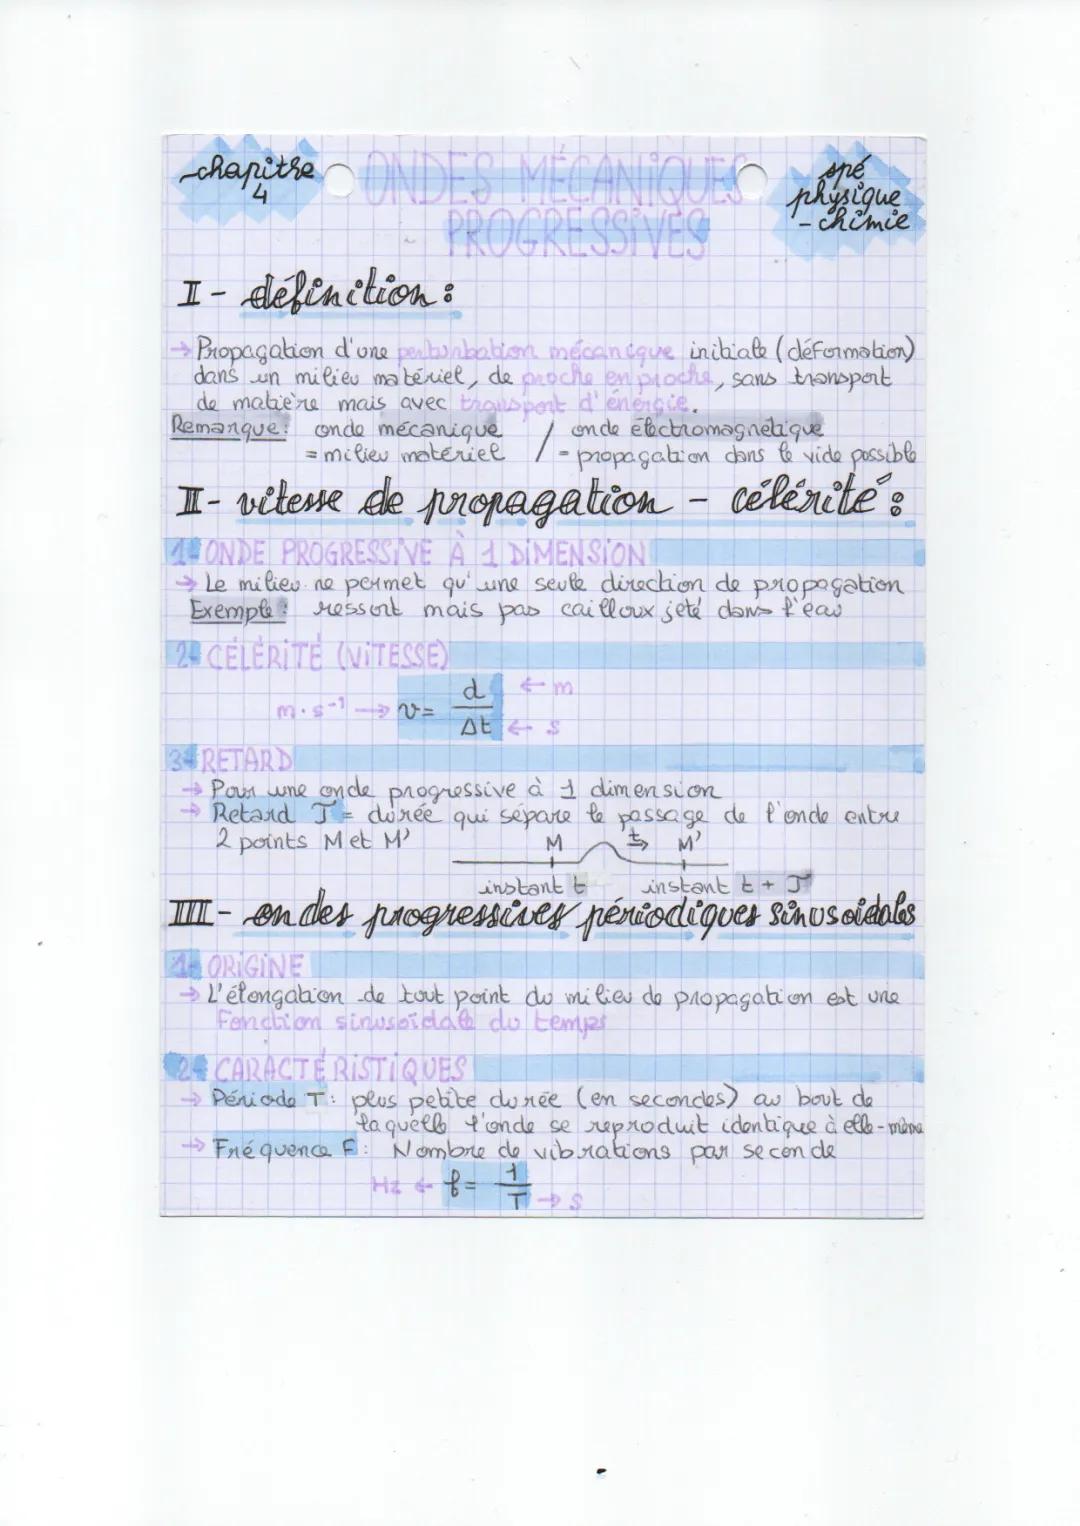 chapitre 4
ONDES MÉCANIQUES
PROGRESSIVES
spé
physique
-chimie
I - définition :
→ Propagation d'une perturbation mécanique initiale (déformation)
dans un milieu matériel, de proche en proche, sans transport
de matière mais avec transport d'énergie.
Remarque : onde mécanique / onde électromagnétique
= milieu matériel / = propagation dans le vide possible
II - vitesse de propagation - célérité :
1- ONDE PROGRESSIVE À 1 DIMENSION
→ Le milieu ne permet qu'une seule direction de propagation
Exemple : ressort mais pas cailloux jeté dans l'eau
2- CÉLÉRITÉ (VITESSE)
m.s⁻¹ → v = d/Δt ← m ← s
3- RETARD
→ Pour une onde progressive à 1 dimension
→ Retard T = durée qui sépare le passage de l'onde entre
2 points M et M'
M t → M'
instant t instant t + T
III - ondes progressives périodiques sinusoidales
1- ORIGINE
→ L'élongation de tout point du milieu de propagation est une
Fonction sinusoïdale du temps
2- CARACTÉRISTIQUES
→ Période T : plus petite durée (en secondes) au bout de
laquelle l'onde se reproduit identique à elle-même
→ Fréquence F : Nombre de vibrations par seconde
Hz ← f = 1/T → s